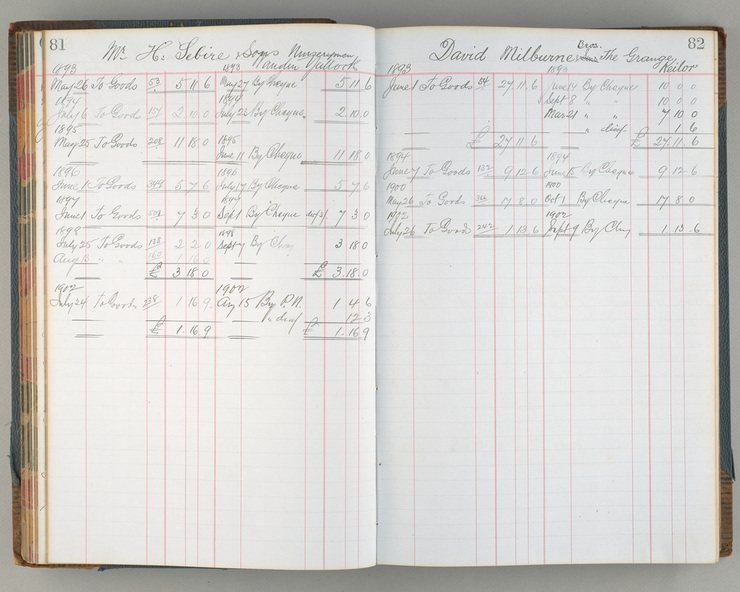 81
Mr H. Sebire & Sons Nurserymen
Wandin Yallock
1893 1893
May 26 To Goods 53 5 11 6 May 27 By Cheque 5 11 6
1894 1894
July 6 To Good 151 2 10 0 July 23 By Cheque 2 10 0
1895 1895
May 25 To Goods 11 18 0 June 11 By Cheque 11 18 0
1896 1896
June To Goods 5 7 6 July 17 By Cheque 5 7 6
1897 1897
June 1 To Goods 7 3 0 Sept 1 By Cheque 7 3 0
1898 1898
July 25 To Goods 2 2 0 Sept 7 By Chq 3 18 0
Aug 13 " " 1 16 0
£ 3 18 0 £ 3 18 0
1902 1902
July 24 To Goods 1 16 9 Aug 15 By P.N. 1 4 6
" disct 12 3
£ 1 16 9 £ 1 16 9
82
David Milburne Bros. Sons The Grange
Keilor
1893 1893
June 1 To Goods 54 27 11 6 June 14 By Cheque 10 0 0
Sept 8 " " 10 0 0
Mar 21 " " 7 10 0
" disct 1 6
£ 27 11 6 £ 27 11 6
1894 1894
June 7 To Goods 132 9 12 6 June 15 By Cheque 9 12 6
1900 1900
May 26 To Goods 17 8 0 Oct 1 By Cheque 17 8 0
1902 1902
July 26 To Goods 242 1 13 6 Sept 9 By Chq 1 13 6